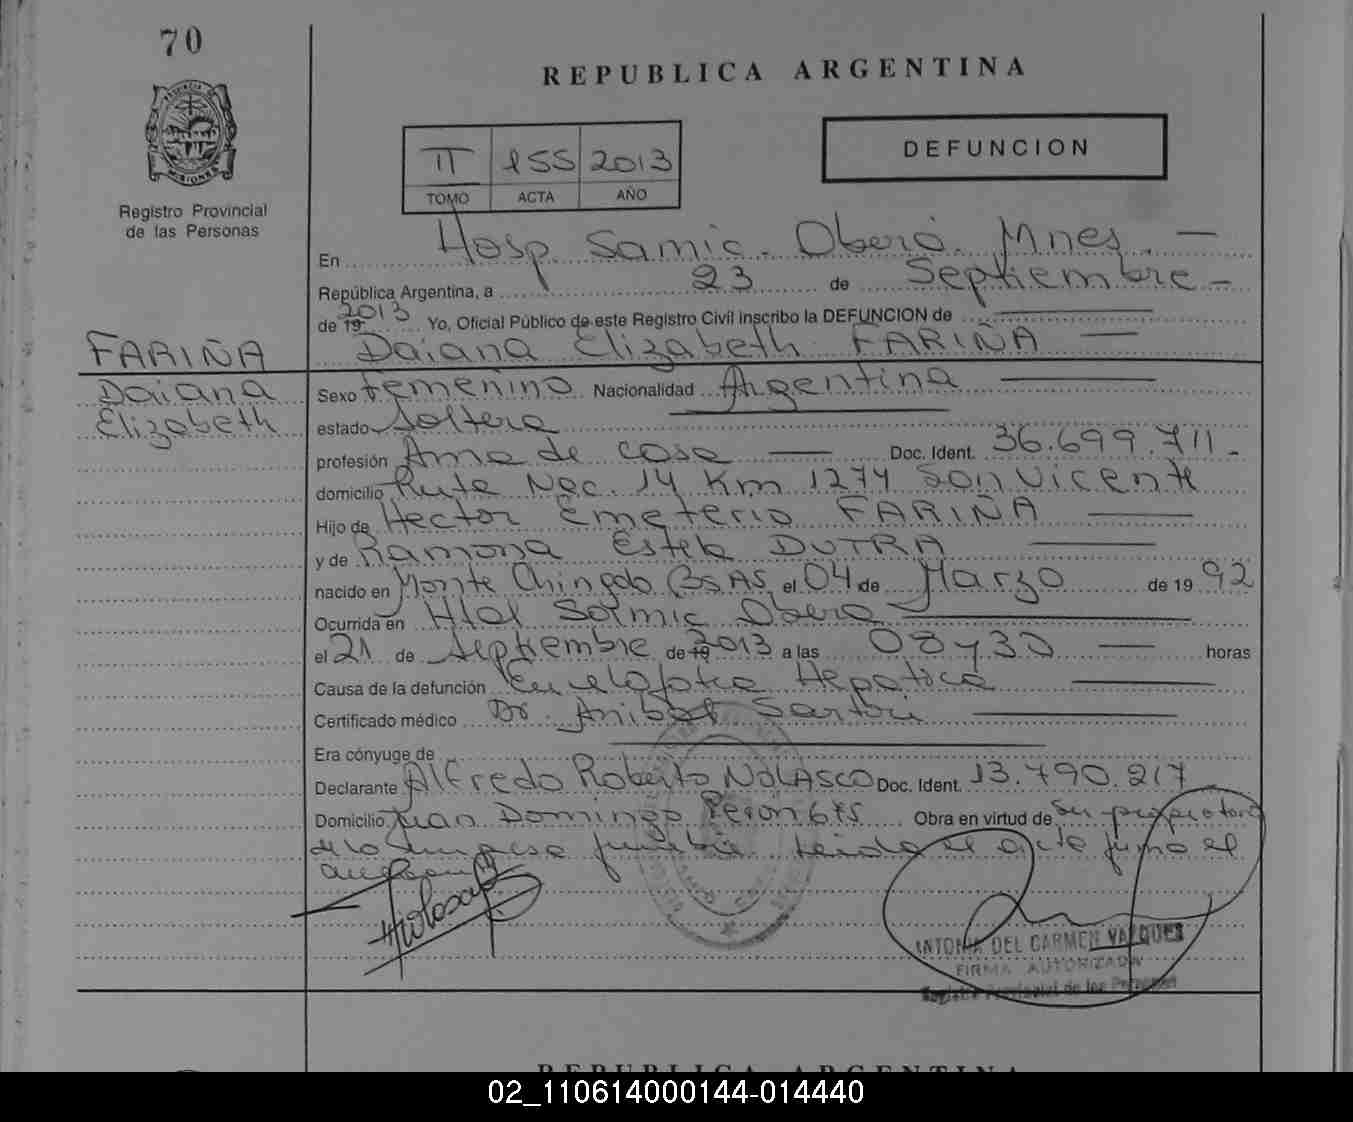 70
REPUBLICA ARGENTINA
DEFUNCION
II 155 2013
TOMO ACTA AÑO
Registro Provincial
de las Personas
En Hosp. Samic. Oberá. Mnes. —
República Argentina, a 23 de Septiembre -
de 19 2013 Yo, Oficial Público de este Registro Civil inscribo la DEFUNCION de
Daiana Elizabeth FARIÑA
FARIÑA
Daiana
Elizabeth
Sexo Femenino Nacionalidad Argentina
estado Soltera
profesión Ama de casa Doc. Ident. 36.699.711.-
domicilio Ruta Nac. 14 Km 1274 San Vicente
Hijo de Hector Emeterio FARIÑA
y de Ramona Estela DUTRA
nacido en Monte Chingolo Bs AS. el 04 de Marzo de 19 92
Ocurrida en Htal Samic Obera
el 21 de Septiembre de 19 2013 a las 08 y 30 horas
Causa de la defunción Hepatica
Certificado médico Dr. Anibal Sartori
Era cónyuge de
Declarante Alfredo Roberto NOLASCO Doc. Ident. 13.790.217
Domicilio Juan Domingo Peron 675 Obra en virtud de su propietario
de la empresa funebre leida el acta firma el
ANTONIA DEL CARMEN VAZQUEZ
FIRMA AUTORIZADA
Registro Provincial de las Personas
REPUBLICA ARGENTINA
02_110614000144-014440